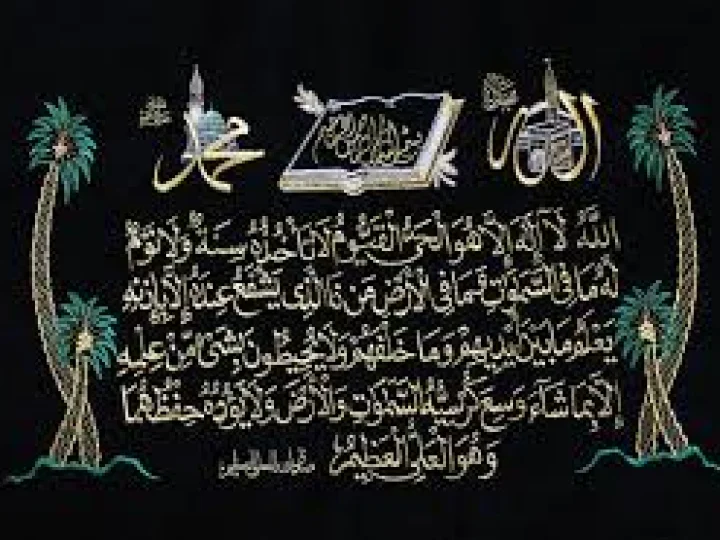 الله
محمد
بسم الله الرحمن الرحيم
اللَّهُ لَا إِلَٰهَ إِلَّا هُوَ الْحَيُّ الْقَيُّومُ لَا تَأْخُذُهُ سِنَةٌ وَلَا نَوْمٌ
لَهُ مَا فِي السَّمَٰوَٰتِ وَمَا فِي الْأَرْضِ مَن ذَا الَّذِي يَشْفَعُ عِندَهُ إِلَّا بِإِذْنِهِ
يَعْلَمُ مَا بَيْنَ أَيْدِيهِمْ وَمَا خَلْفَهُمْ وَلَا يُحِيطُونَ بِشَيْءٍ مِّنْ عِلْمِهِ
إِلَّا بِمَا شَاءَ وَسِعَ كُرْسِيُّهُ السَّمَٰوَٰتِ وَالْأَرْضَ وَلَا يَئُودُهُ حِفْظُهُمَا
وَهُوَ الْعَلِيُّ الْعَظِيمُ